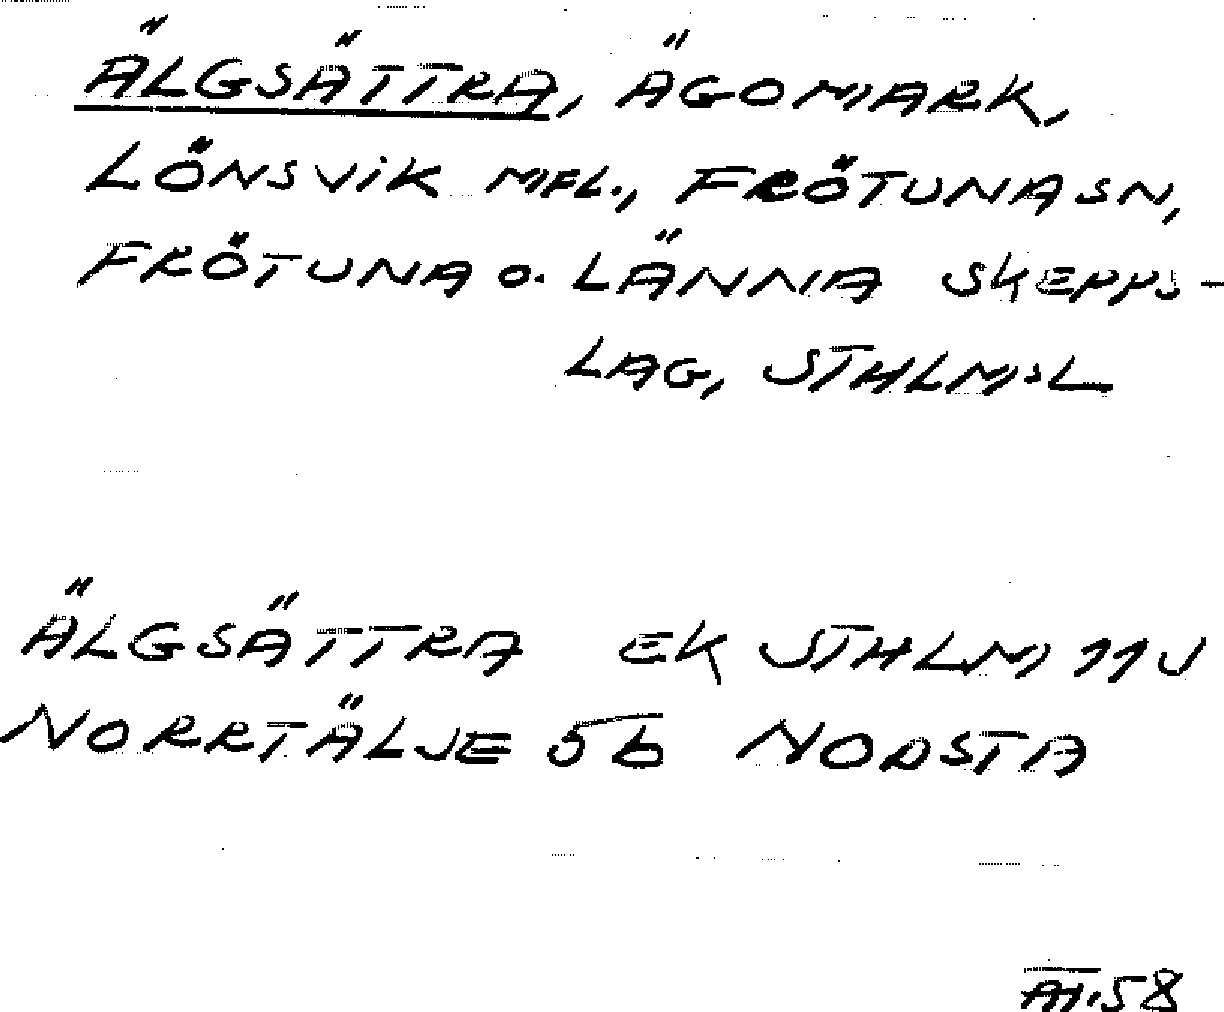 ÄLGSÄTTRA, ÄGOMARK,
LÖNSVIK MFL., FRÖTUNA SN,
FRÖTUNA O. LÄNNA SKEPPS-
LAG, STHLMSL
ÄLGSÄTTRA EK STHLM 11J
NORRTÄLJE 5b NODSTA
58